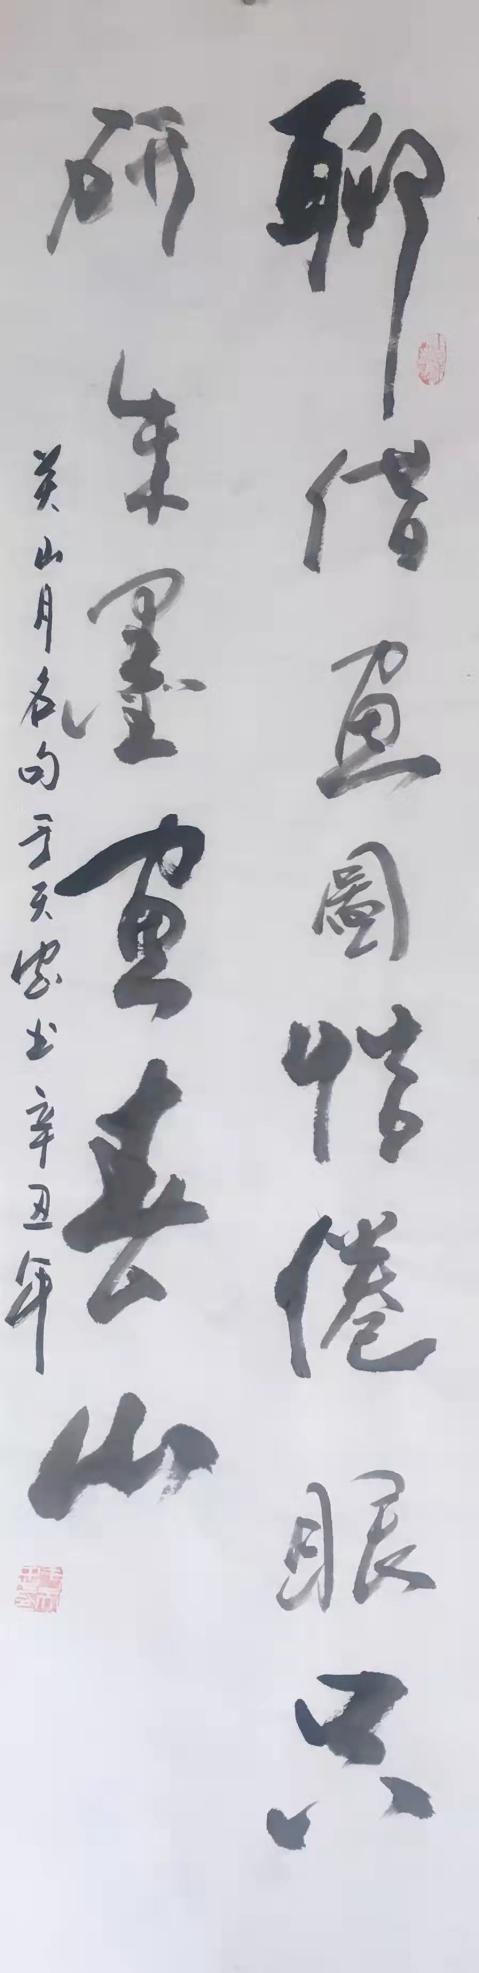 聊借畫圖惜倦眼只
研朱墨畫春山
关山月名句于天忠书辛丑年